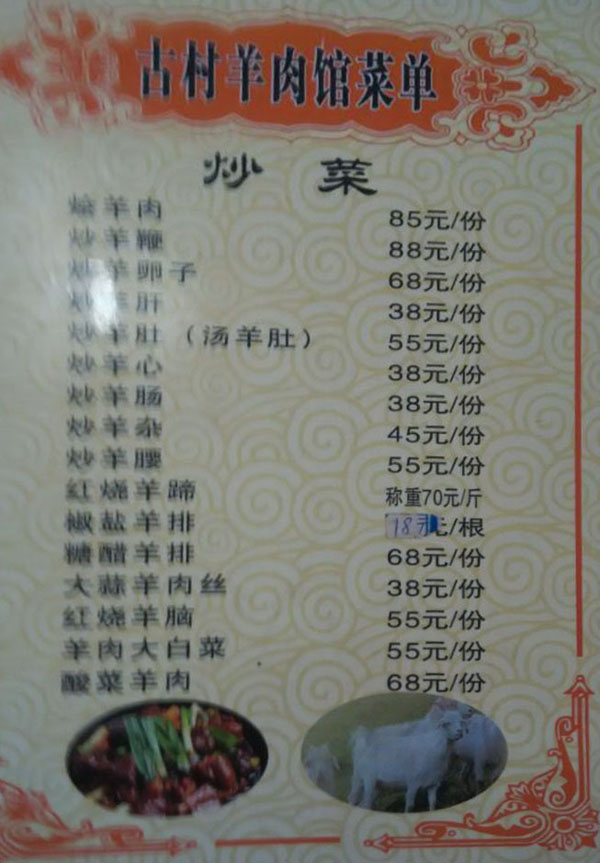 古村羊肉馆菜单
炒 菜
烩羊肉 85元/份
炒羊鞭 88元/份
炒羊卵子 68元/份
炒羊肝 38元/份
炒羊肚（汤羊肚） 55元/份
炒羊心 38元/份
炒羊肠 38元/份
炒羊杂 45元/份
炒羊腰 55元/份
红烧羊蹄 称重70元/斤
椒盐羊排 18元/根
糖醋羊排 68元/份
大蒜羊肉丝 38元/份
红烧羊脑 55元/份
羊肉大白菜 55元/份
酸菜羊肉 68元/份